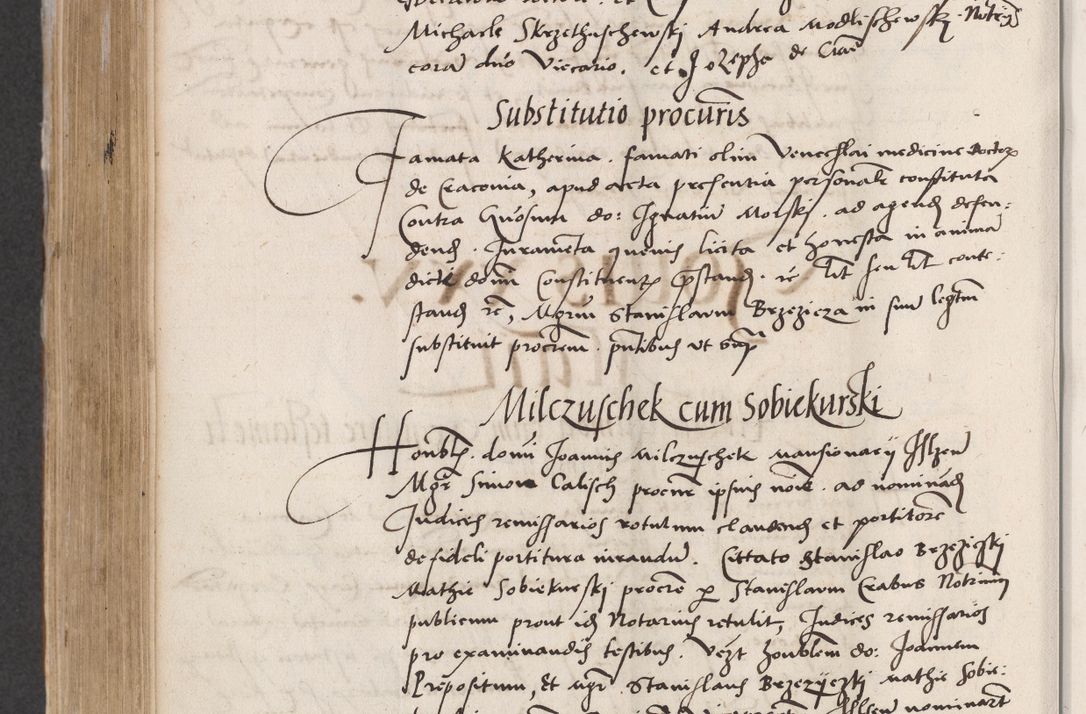 Michaele Skrzethuschewskj Andrea Modlischewskj Notrijs
cora duo Vicario. et Jozepho de Crac
Substitutio procuris
Famata Katherina. famati olim Venceslai medicine doctor
de Cracovia, apud acta presentia personalr constituta
Contra Gnosum do: Ignatiu Morskj. ad agend defen:
dend. Jurameta quevis licita et honesta in anima
dicte domi Constituent prestand. re lit seu lit conte:
stand re, Mgrum Stanislaum Brzezicza in suu legtm
substituit procrem. pntibus ut supr
Milczuschek cum Sobiekurski
Honblis domi Joannis Milczuschek mansionarij Ilszen
Mgr Simon Calisch procur ipsius noie. ad nominad
Judices remissarios rotulum claudend et portitore
de fideli portitura iurandu. Cittato Stanislao Brzeziczkj
Mathie Sobiekurskj procre per Stanislaum Crabus Notrium
publicum prout id Notarius retulit, Judices remissarios
pro examinandis testibus. Vezt honblem do: Joannem
Prepositum, et mgr Stanislaus Brzezijczkj mathie Sobie:
Ilszen nominavt